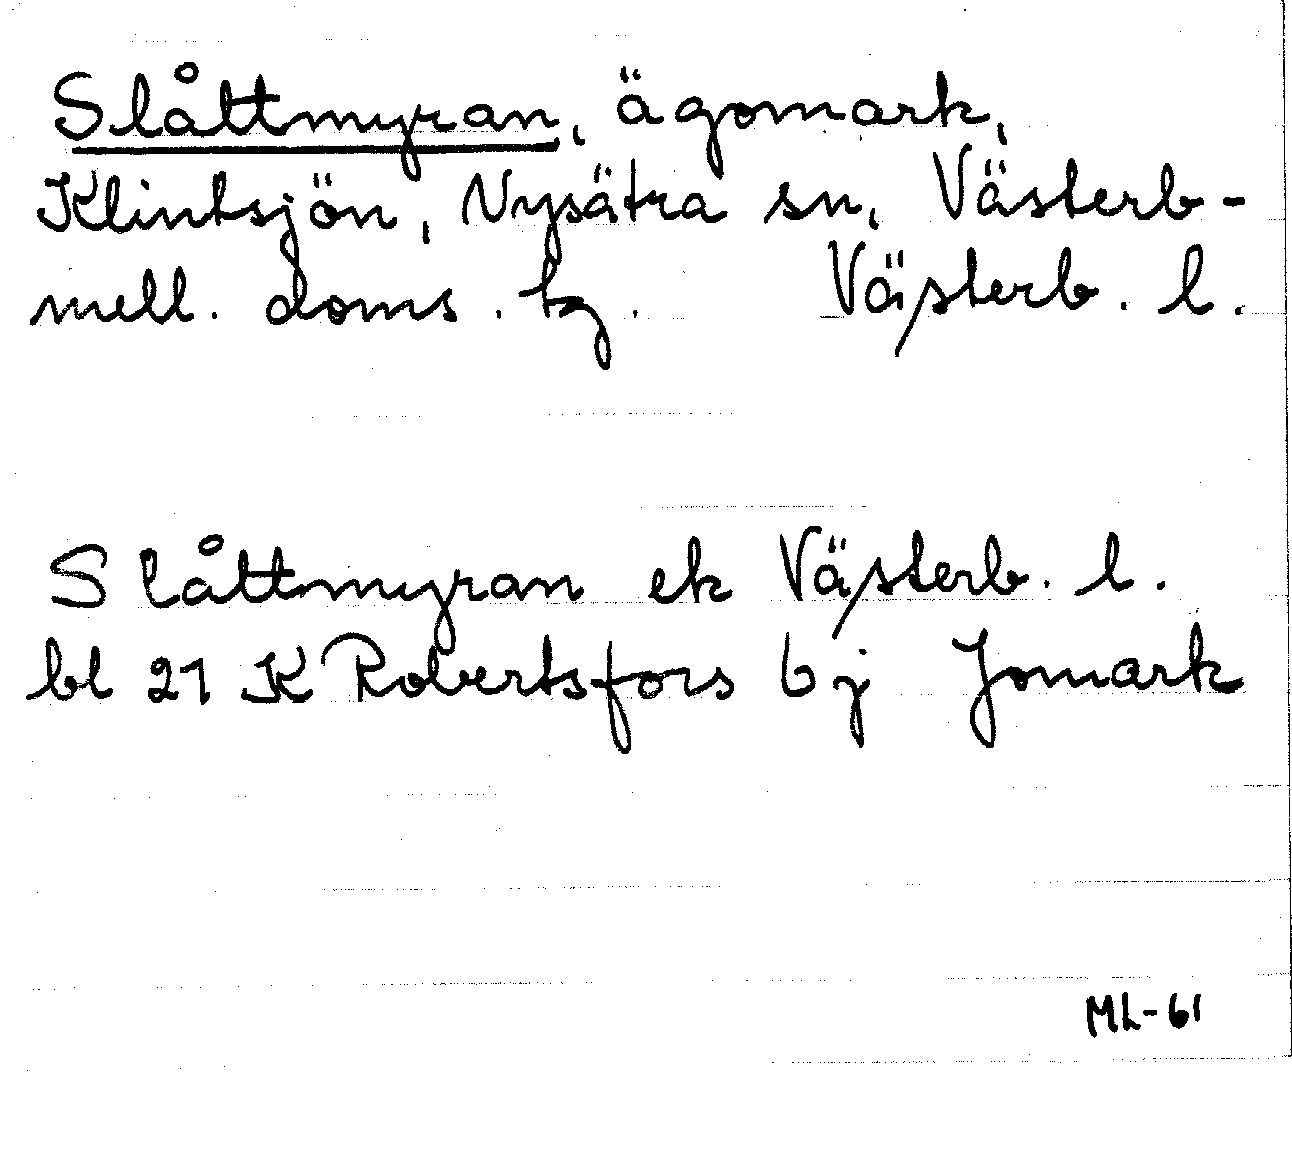 Slåttmyran, ägomark,
Klintsjön, Nysätra sn, Västerb-
mell. doms. tg. Västerb. l.
Slåttmyran ek Västerb. l.
bl 21 K Robertsfors 6j Jomark
ML-61